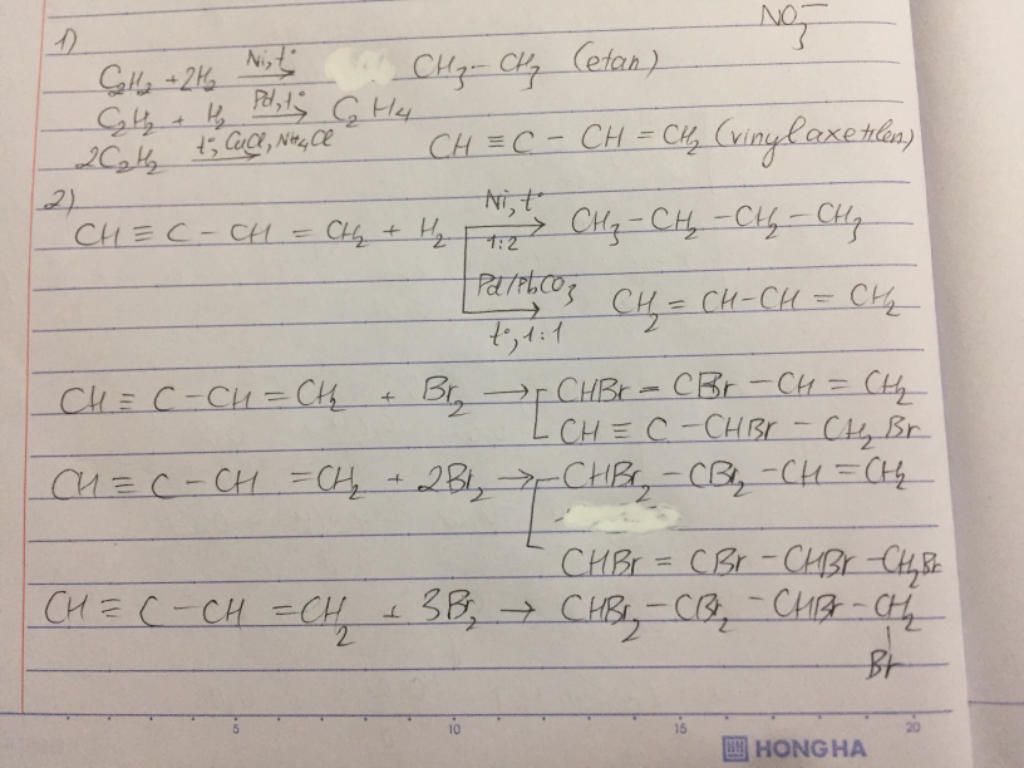 NO₃⁻
1)
C₂H₂ + 2H₂ —Ni, t°→ CH₃ - CH₃ (etan)
C₂H₂ + H₂ —Pd, t°→ C₂H₄
2C₂H₂ —t°, CuCl, NH₄Cl→ CH ≡ C - CH = CH₂ (vinylaxetilen)
2)
CH ≡ C - CH = CH₂ + H₂ —Ni, t° 1:2→ CH₃ - CH₂ - CH₂ - CH₃
—Pd/PbCO₃ t°, 1:1→ CH₂ = CH - CH = CH₂
CH ≡ C - CH = CH₂ + Br₂ → CHBr = CBr - CH = CH₂
CH ≡ C - CHBr - CH₂Br
CH ≡ C - CH = CH₂ + 2Br₂ → CHBr₂ - CBr₂ - CH = CH₂
CHBr = CBr - CHBr - CH₂Br
CH ≡ C - CH = CH₂ + 3Br₂ → CHBr₂ - CBr₂ - CHBr - CH₂
Br
5 10 15 20
HONG HA